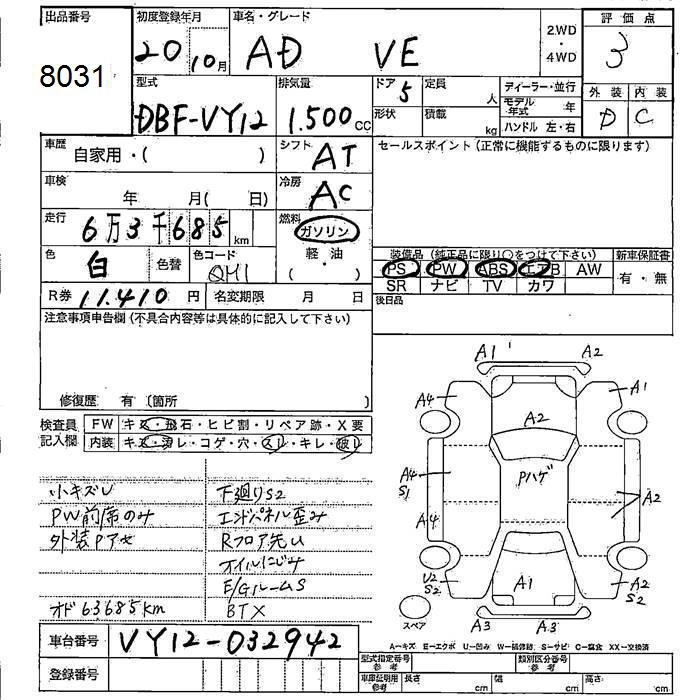 出品番号
8031
初度登録年月
20 10月
車名・グレード
AD VE
2.WD
・
4WD
評価点
3
外装 内装
D C
型式
DBF-VY12
排気量
1.500 CC
ドア 5
形状
定員 人
積載 kg
ディーラー・並行
モデル年式 年
ハンドル 左・右
車歴
自家用・( )
シフト
AT
セールスポイント (正常に機能するものに限ります)
車検
年 月( 日)
冷房
AC
走行
6万3千685 km
燃料
ガソリン
軽・油
( )
色
白
色替
色コード
QM1
R券 11.410 円
名変期限 月 日
装備品 (純正品に限り○をつけて下さい)
PS PW ABS エアB AW
SR ナビ TV カワ
新車保証書
有・無
後日品
注意事項申告欄 (不具合内容等は具体的に記入して下さい)
修復歴 有 (箇所 )
検査員
記入欄
FW キズ・飛石・ヒビ割・リペア跡・X要
内装 キズ・汚レ・コゲ・穴・スレ・キレ・破レ
小キズU
PW前席のみ
外装Pアセ
オド 63685km
下廻りS2
エンドパネル歪み
Rフロア先U
オイルにじみ
E/GルームS
BTX
A1 A2
A4 A1
A2
A4
S1
Pハゲ
A2
A4
U2
S2
A1
A2
S2
スペア
A3 A3
A-キズ E-エクボ U-凹み W-補修跡 S-サビ C-腐食 XX-交換済
車台番号
VY12-032942
登録番号
型式指定番号
参考
類別区分番号
参考
車庫証明用
参考
長さ cm
幅 cm
高さ cm